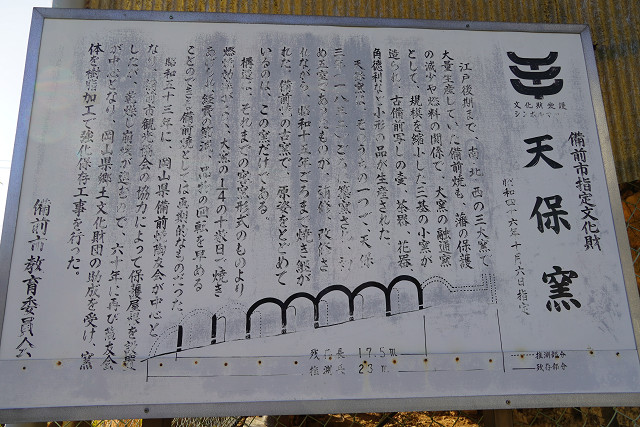 文化財愛護
シンボルマーク
備前市指定文化財
天保窯
昭和四十六年十月六日指定
江戸後期まで、南、北、西の三大窯で
大量生産していた備前焼も、藩の保護
の減少や燃料の関係で、大窯の融通窯
として、規模を縮小した三基の小窯が
造られ、古備前写しの壷、茶器、花器、
角徳利など小形の品が生産された。
天保窯は、そのうちの一つで、天保
三年
めて
れながら、昭和十五年ごろまで焼き継が
れた。備前の古窯で、原姿をとどめて
いるのは、この窯だけである。
構造は、それまでの窖窯形式のものより
燃焼効率がよく、大窯の1/4の十数日で焼き
経費の節減、品物の回転を早める
ことのできる備前焼としては画期的なものだった。
昭和五十三年に、岡山県備前焼陶友会が中心と
なり
観光協会の協力によって保護屋根を新設
したが、乾燥し崩壊が進むので、六十年に再び陶友会
が中心となり、岡山県郷土文化財団の助成を受け、窯
体を樹脂加工で強化保存工事を行った。
備前市教育委員会
残存長 17.5m
推測長 23m
推測部分
残存部分